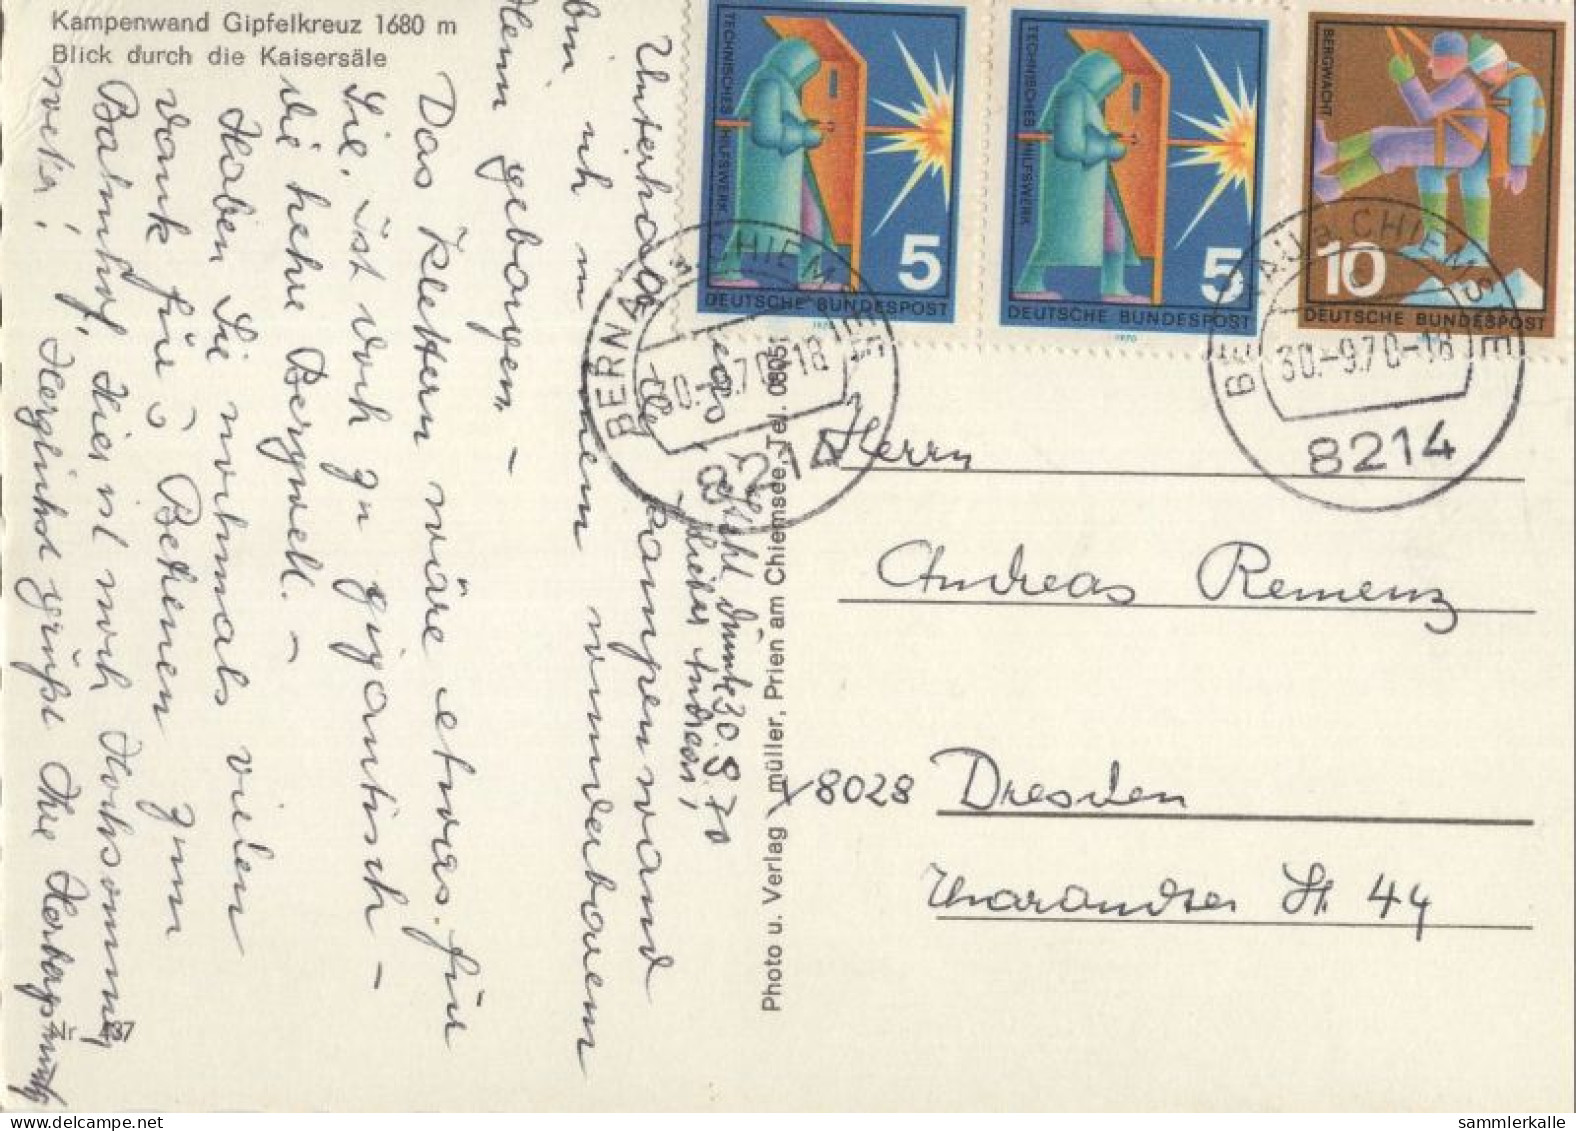 Kampenwand Gipfelkreuz 1680 m
Blick durch die Kaisersäle
TECHNISCHES HILFSWERK
5
DEUTSCHE BUNDESPOST
1970
TECHNISCHES HILFSWERK
5
DEUTSCHE BUNDESPOST
1970
BERGWACHT
10
DEUTSCHE BUNDESPOST
BERNAU a. CHIEMSEE
30.-9.70-18
8214
BERNAU a. CHIEMSEE
30.-9.70-18
8214
30.9.70
Lieber Andreas,
Unterhalb der Kampenwand
bin ich in einem wunderbaren
Heim geborgen –
Das Klettern wäre etwas für
Sie, ist doch zu gigantisch –
die hehre Bergwelt. –
Haben Sie nochmals vielen
Dank für zum
Bahnhof, Hier ist noch Hochsommer
Herzlichst grüßt Ihre
Nr 437
Photo u. Verlag müller, Prien am Chiemsee, Tel. 08051
Herrn
Andreas Remenz
X 8028 Dresden
Tharandter St. 44
sammlerkalle